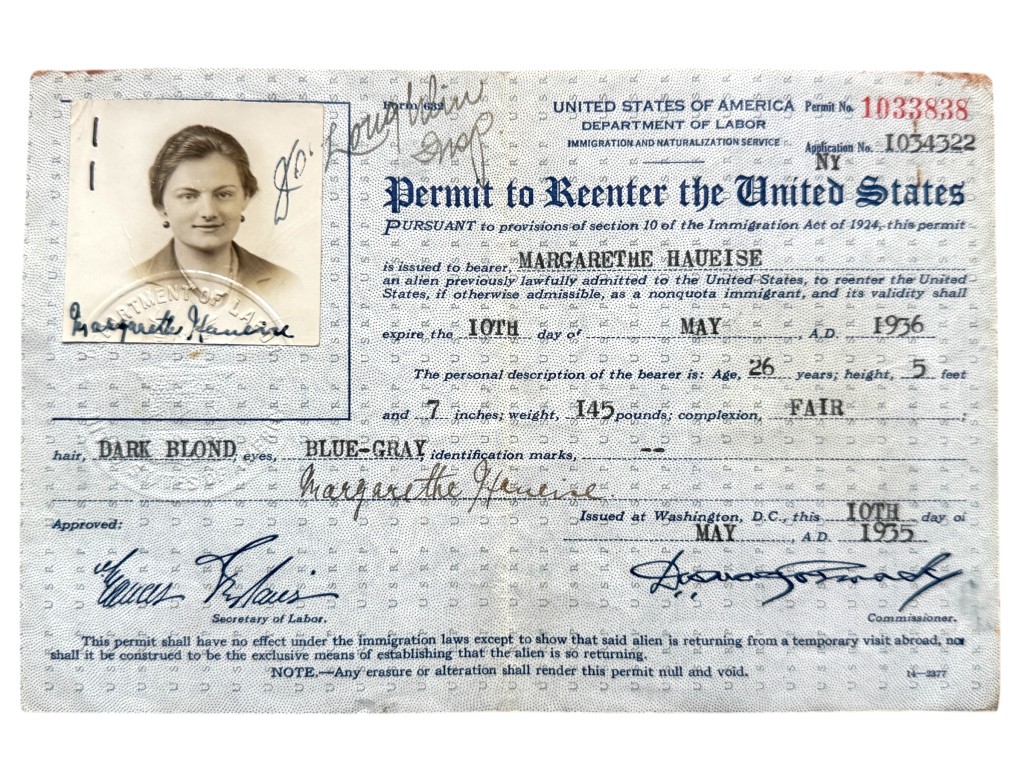 Form 632
UNITED STATES OF AMERICA
DEPARTMENT OF LABOR
IMMIGRATION AND NATURALIZATION SERVICE
Permit No. 1033838
Application No. 1034322
NY
Permit to Reenter the United States
PURSUANT to provisions of section 10 of the Immigration Act of 1924, this permit
is issued to bearer, MARGARETHE HAUEISE
an alien previously lawfully admitted to the United States, to reenter the United
States, if otherwise admissible, as a nonquota immigrant, and its validity shall
expire the 10TH day of MAY, A.D. 1936
Margarethe Haueise
The personal description of the bearer is: Age, 26 years; height, 5 feet
and 7 inches; weight, 145 pounds; complexion, FAIR;
hair, DARK BLOND, eyes, BLUE-GRAY, identification marks, --
Margarethe Haueise
Issued at Washington, D.C., this 10TH day of
MAY, A.D. 1935
Approved:
Secretary of Labor.
Commissioner.
This permit shall have no effect under the immigration laws except to show that said alien is returning from a temporary visit abroad, nor
shall it be construed to be the exclusive means of establishing that the alien is so returning.
NOTE.—Any erasure or alteration shall render this permit null and void.
14—2377